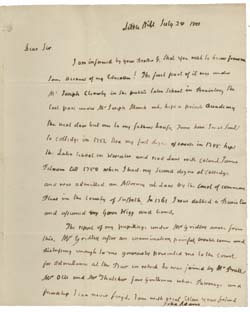 Little Hill July 24
Dear Sir
I am informed by your Brother G. that you wish to know from me
some account of my Education! The first part of it was under
Mr Joseph Cleverly in the public Latin School in Braintree, the
last year under Mr Joseph Marsh who kept a private Academy
the next door but one to my fathers house, from him I was sent
to Colledge in 1751 Took my first degree of course in 1755 kept
the Latin School in Worcester and read Law with Colonel James
Putnam till 1758 when I had my second degree at Colledge
and was admitted an Attorney at Law by the Court of common
Pleas in the County of Suffolk. In 1761 I was dubbed a Barrister
and assumed my Gown Wigg and band.
The report of my
this, Mr Gridley after an examination
enough to me generously presented me to the Court
for admittance at the Bar in which he was joined by Mr Pratt,
Mr Otis and Mr Thatcher four Gentlemen whose and
friendship I can never forget. I am with great esteem your friend
John Adams